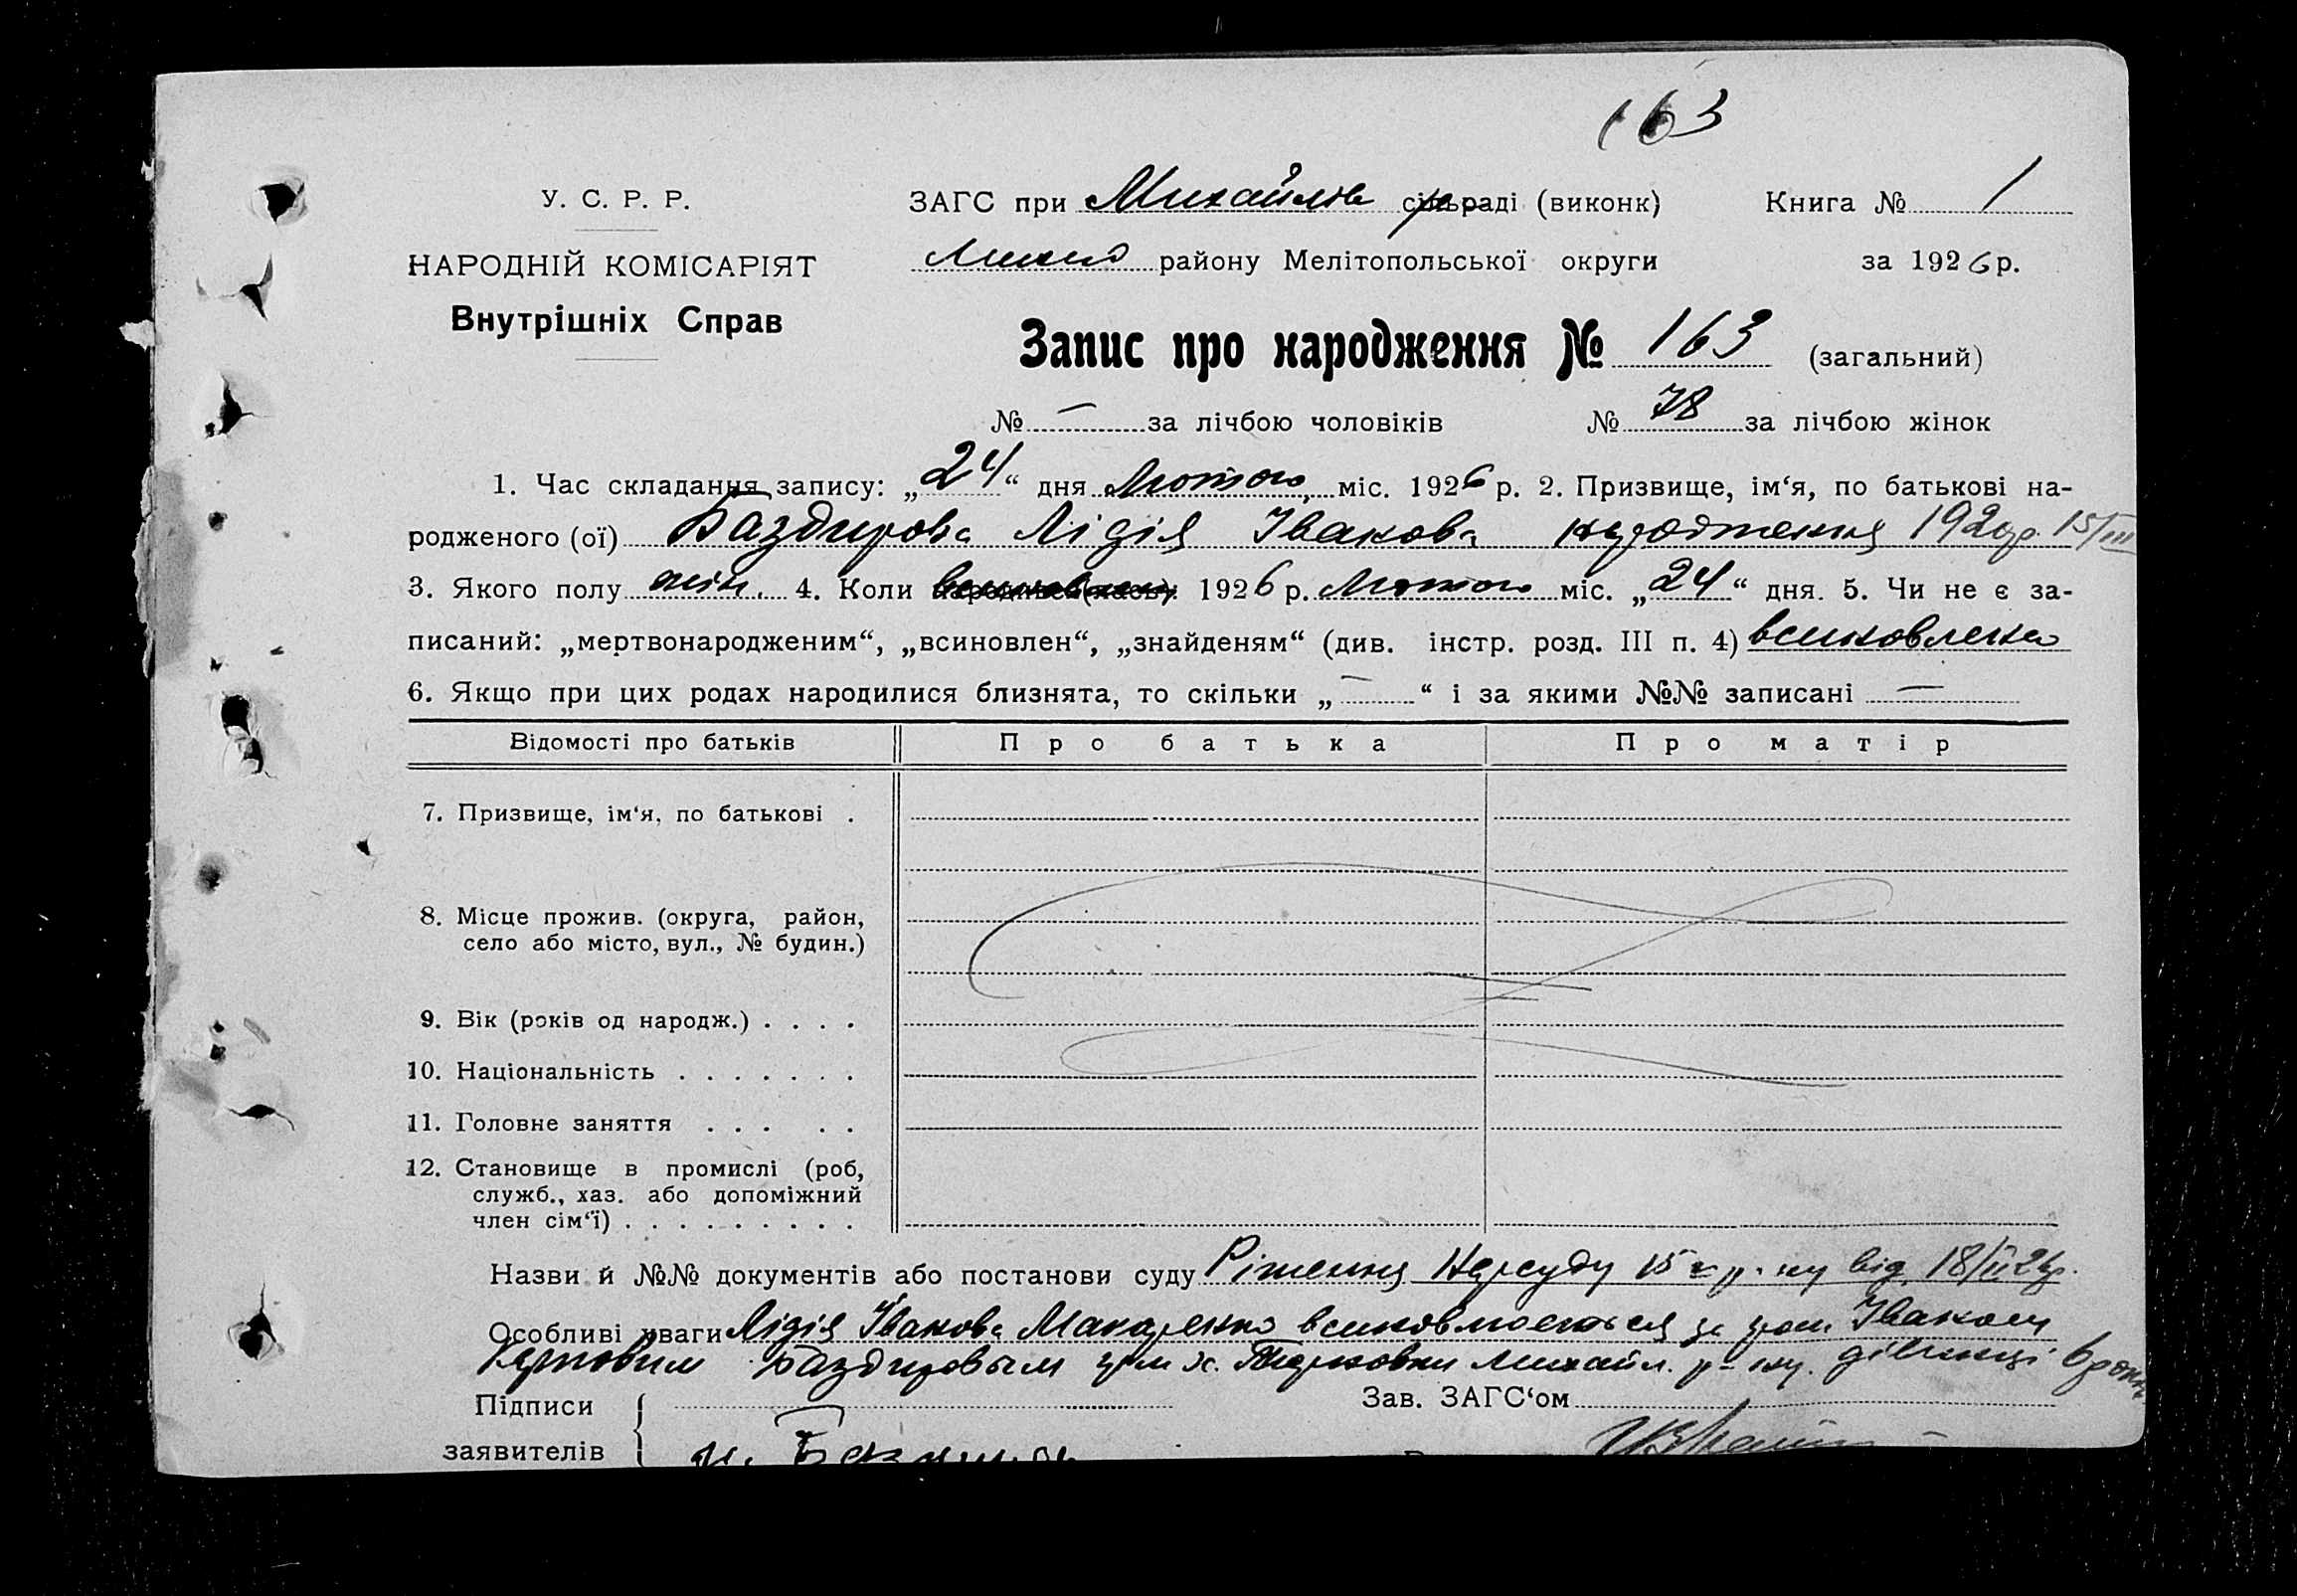 163
У. С. Р. Р.
НАРОДНІЙ КОМІСАРІЯТ
Внутрішніх Справ
ЗАГС при Михайлів сільраді (виконк) Книга № 1
Михай району Мелітопольської округи за 1926 р.
Запис про народження № 163 (загальний)
№ — за лічбою чоловіків № 78 за лічбою жінок
1. Час складання запису: „24“ дня Лютого міс. 1926 р. 2. Призвище, ім‘я, по батькові на-
родженого (ої) Баздирова Лідія Іванова народження 1920р. 15/III
3. Якого полу жін. 4. Коли 1926 р. Лютого міс. „24“ дня. 5. Чи не є за-
писаний: „мертвонародженим“, „всиновлен“, „знайденям“ (див. інстр. розд. III п. 4) всиновлена
6. Якщо при цих родах народилися близнята, то скільки „—“ і за якими №№ записані —
Відомості про батьків Про батька Про матір
7. Призвище, ім‘я, по батькові .
8. Місце прожив. (округа, район,
село або місто, вул., № будин.)
9. Вік (років од народж.) . . . .
10. Національність . . . . . . .
11. Головне заняття . . . . .
12. Становище в промислі (роб,
служб., хаз. або допоміжний
член сім‘ї) . . . . . . . . .
Назви й №№ документів або постанови суду Рішення Нарсуду 15 р-ну від 18/II 26р.
Особливі уваги Лідія Іванова Макаренко всиновлюється за гром Іваном
Баздировым гром х. Тарновки Михайл. р-ну. дівчинці 6 рок
Підписи Зав. ЗАГС‘ом
заявителів